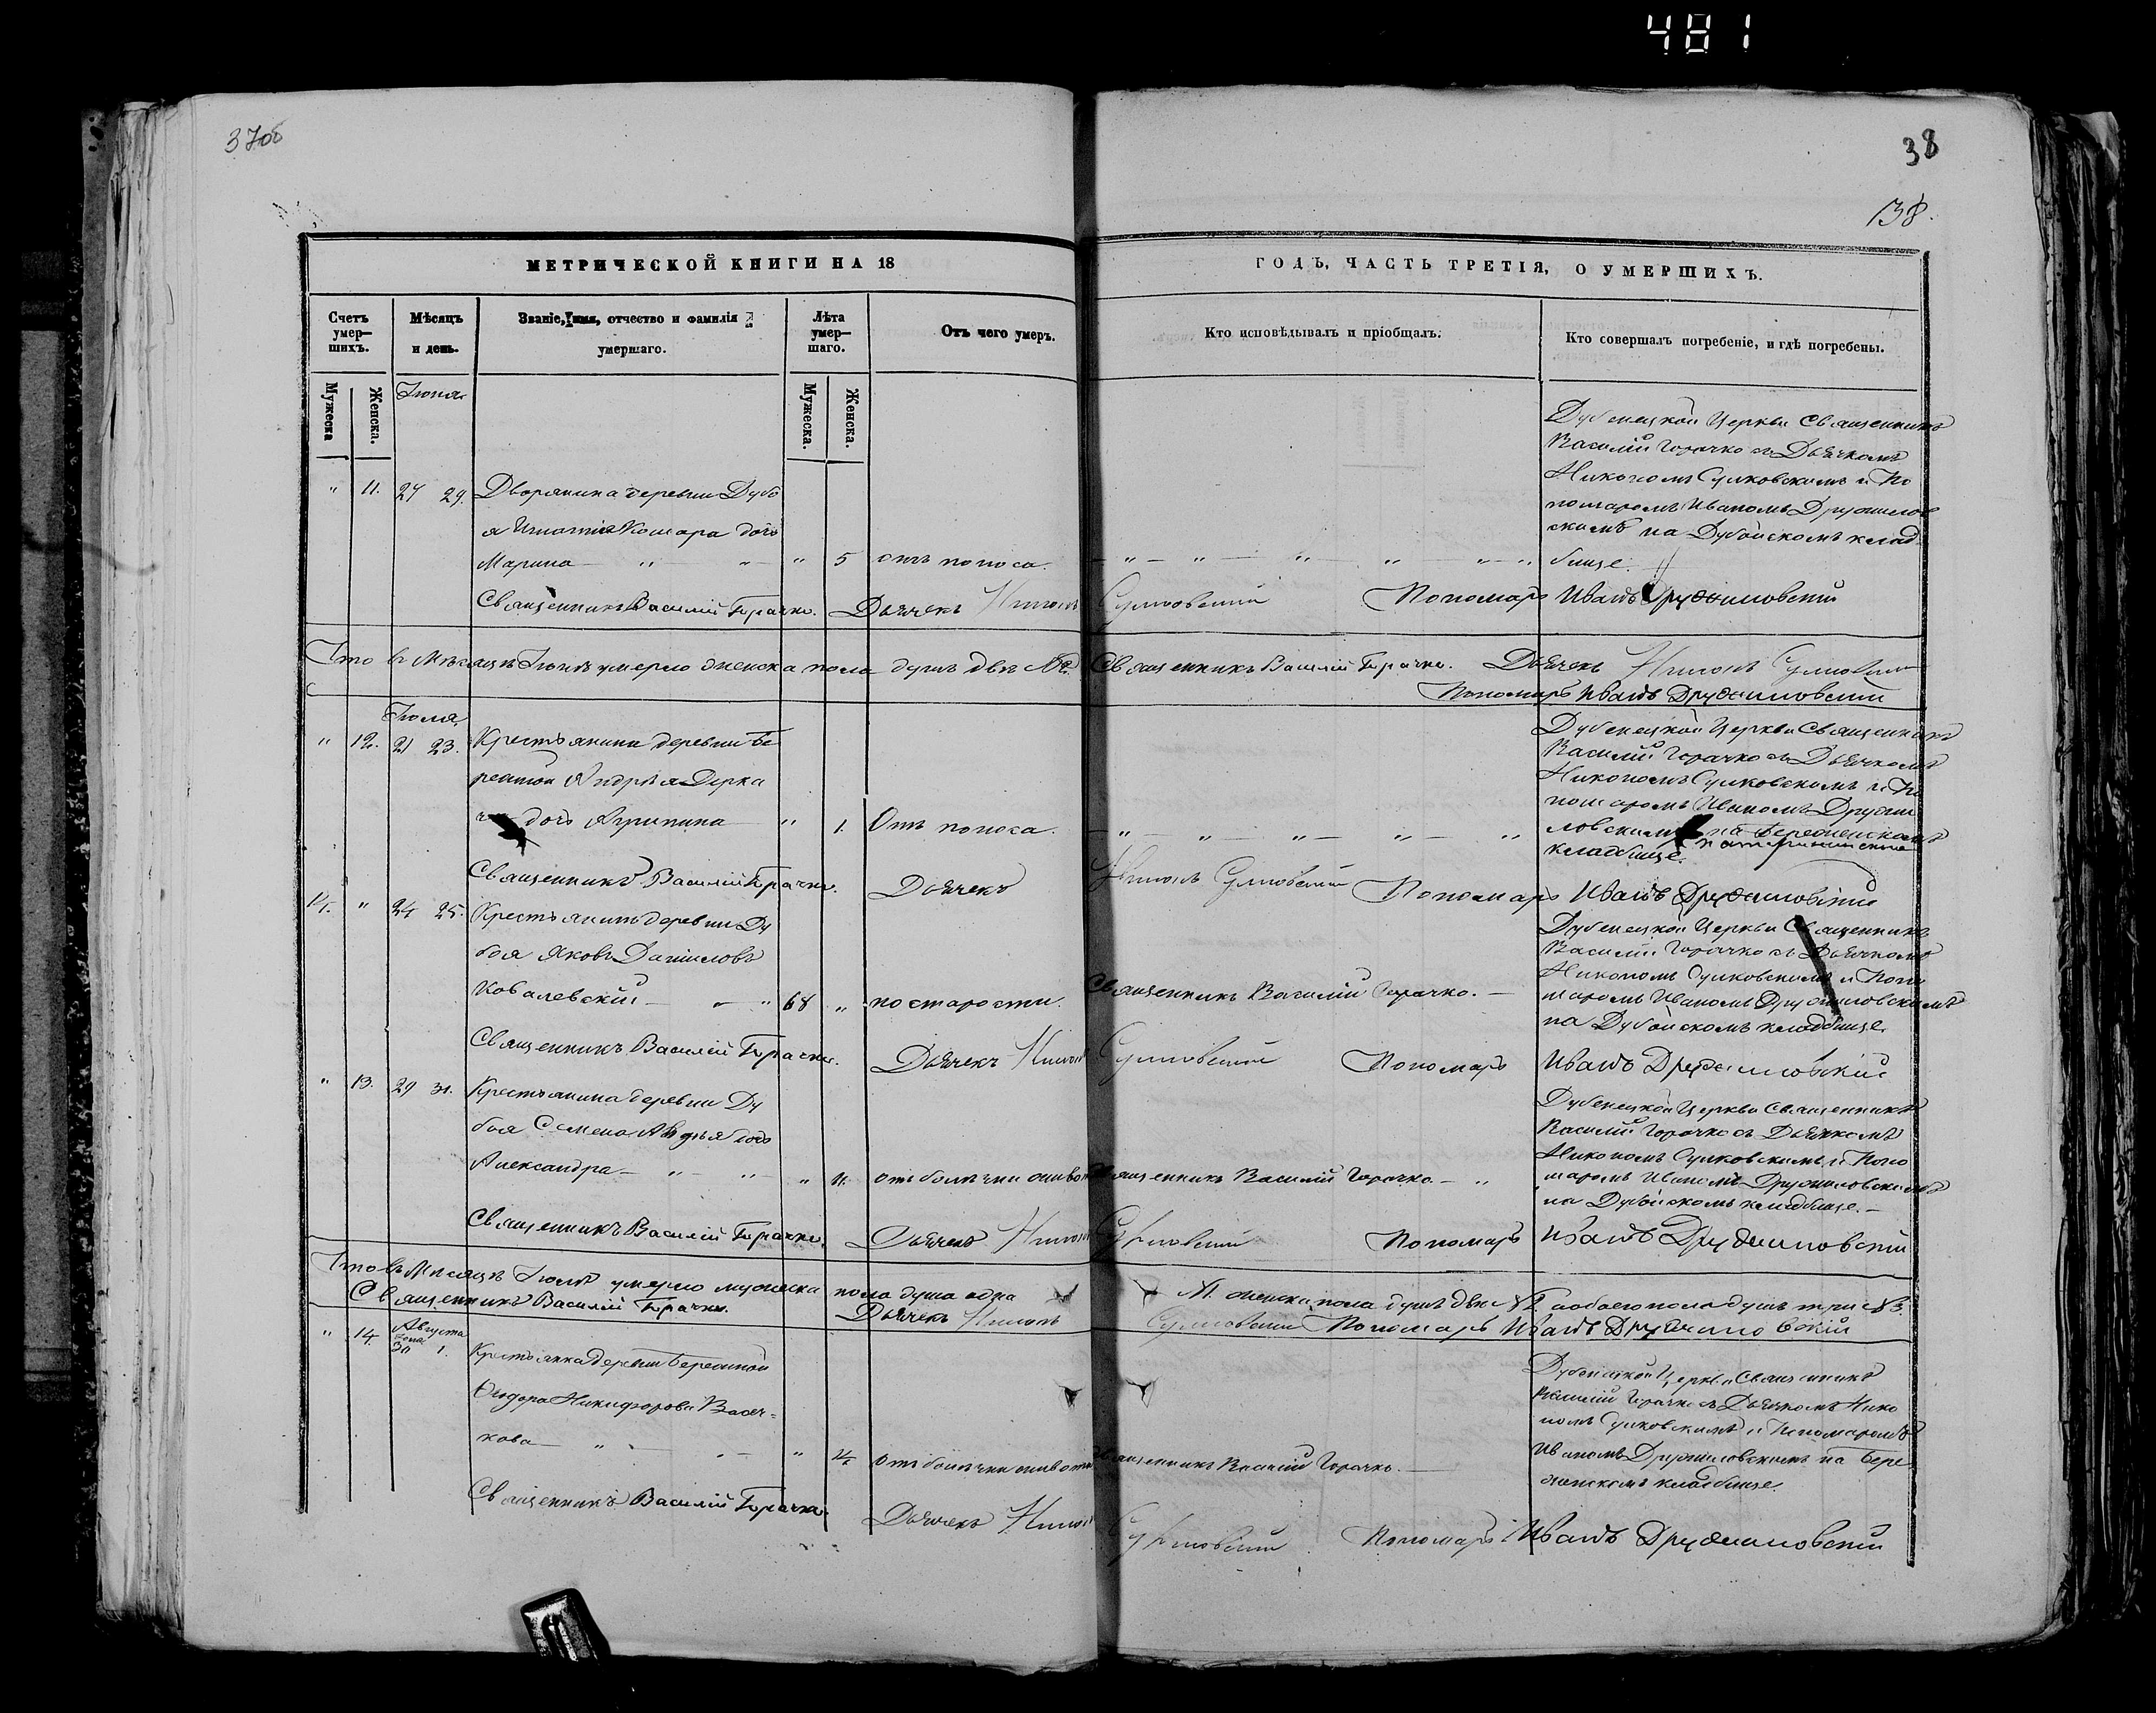 481
37об
38
138.
МЕТРИЧЕСКОЙ КНИГИ НА 18
ГОДЪ, ЧАСТЬ ТРЕТІЯ, О УМЕРШИХЪ.
Счетъ умер—шихъ.
Мѣсяцъ и день.
Званіе, имя, отчество и фамилія умершаго.
Лѣта умер—шаго.
Отъ чего умеръ.
Кто исповѣдывалъ и пріобщалъ.
Кто совершалъ погребеніе, и гдѣ погребены.
Мужеска
Женска.
Мужеска.
Женска.
Іюня
" 11. 27 29. Дворянина деревни Дубо
я Игнатія Комара дочь
Марина " 5 отъ поноса.
Дубенецкой Церкви Священникъ
Василій Горачко съ Дьячкомъ
Никономъ Сулковскимъ и По
номаромъ Иваномъ Дружилов
скимъ на Дубойскомъ клад
бище.
Священникъ Василій Горачко. Дьячекъ Никонъ Сулковскій Пономарь Иванъ Дружиловскій
Итого въ Мѣсяцѣ Іюнѣ умерло женска пола душъ двѣ №2. Священникъ Василій Горачко. Дьячекъ Никонъ Сулковскій
Пономарь Иванъ Дружиловскій
Іюля
" 12. 21 23. Крестьянина деревни Бе
режной Андрея Дерка
ча дочь Агрипина " 1. Отъ поноса.
Дубенецкой Церкви Священникъ
Василій Горачко съ Дьячкомъ
Никономъ Сулковскимъ и По
номаромъ Иваномъ Дружи
ловскимъ на Бережненскомъ
кладбище.
Священникъ Василій Горачко. Дьячекъ Никонъ Сулковскій Пономарь Иванъ Дружиловскій
" 24 25. Крестьянинъ деревни Ду
боя Яковъ Даниловъ
Ковалевскій 68 " по старости. Священникъ Василій Горачко.
Дубенецкой Церкви Священникъ
Василій Горачко съ Дьячкомъ
Никономъ Сулковскимъ и Поно
маромъ Иваномъ Дружиловскимъ
на Дубойскомъ кладбище.
Священникъ Василій Горачко. Дьячекъ Никонъ Сулковскій Пономарь Иванъ Дружиловскій
" 13. 29 31. Крестьянина деревни Ду
боя Семена дочь
Александра " отъ болячки Священникъ Василій Горачко "
Дубенецкой Церкви Священникъ
Василій Горачко съ Дьячкомъ
Никономъ Сулковскимъ и Поно
маромъ Иваномъ Дружиловскимъ
на Дубойскомъ кладбище.
Священникъ Василій Горачко. Дьячекъ Никонъ Сулковскій Пономарь Иванъ Дружиловскій
Итого въ Мѣсяцѣ Іюлѣ умерло мужеска пола душа одна женска пола душъ двѣ а обоего пола душъ три
Священникъ Василій Горачко. Дьячекъ Никонъ Сулковскій Пономарь Иванъ Дружиловскій
Августа
" 14. 30 1. Крестьянка деревни Бережной
Ѳеодора Никифорова
кова "
Священникъ Василій Горачко.
Дубенецкой Церкви Священникъ
Василій Горачко съ Дьячкомъ Нико
номъ Сулковскимъ и Пономаромъ
Иваномъ Дружиловскимъ на Бере
жненскомъ кладбище.
Священникъ Василій Горачко. Дьячекъ Никонъ Сулковскій Пономарь Иванъ Дружиловскій